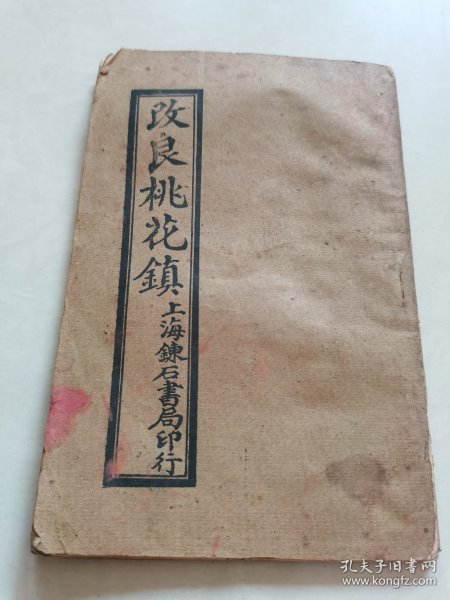 改良桃花鎮
上海錬石書局印行
孔夫子旧书网
www.kongfz.com